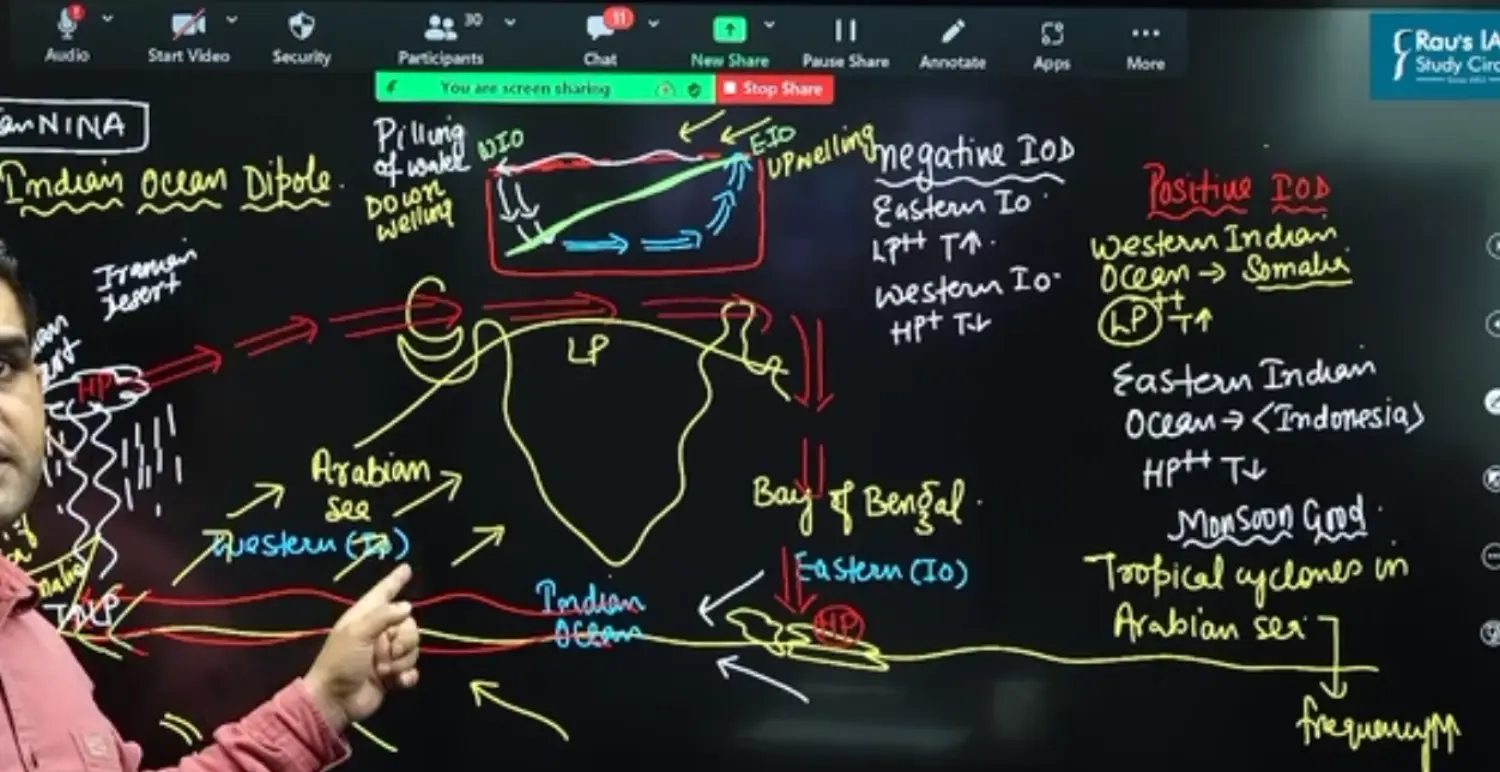 Audio
Start Video
Security
Participants
30
Chat
11
New Share
Pause Share
Annotate
Apps
More
You are screen sharing
Stop Share
Rau's IA
Study Circ
NINA
Indian Ocean Dipole.
Iranian
Desert
HP
Pilling
of water
Down
welling
WIO
EIO
UPwelling
LP
Arabian
see
Western (Io)
Indian
Ocean
Bay of Bengal.
Eastern (IO)
HP
negative IOD
Eastern Io
LP++ T↑.
Western Io.
HP+ T↓
Positive IOD
Western Indian
Ocean → Somalia
LP++ T↑
Eastern Indian
Ocean → <Indonesia>
HP++ T↓
Monsoon Good.
Tropical cyclones in
Arabian ser
frequency↑↑